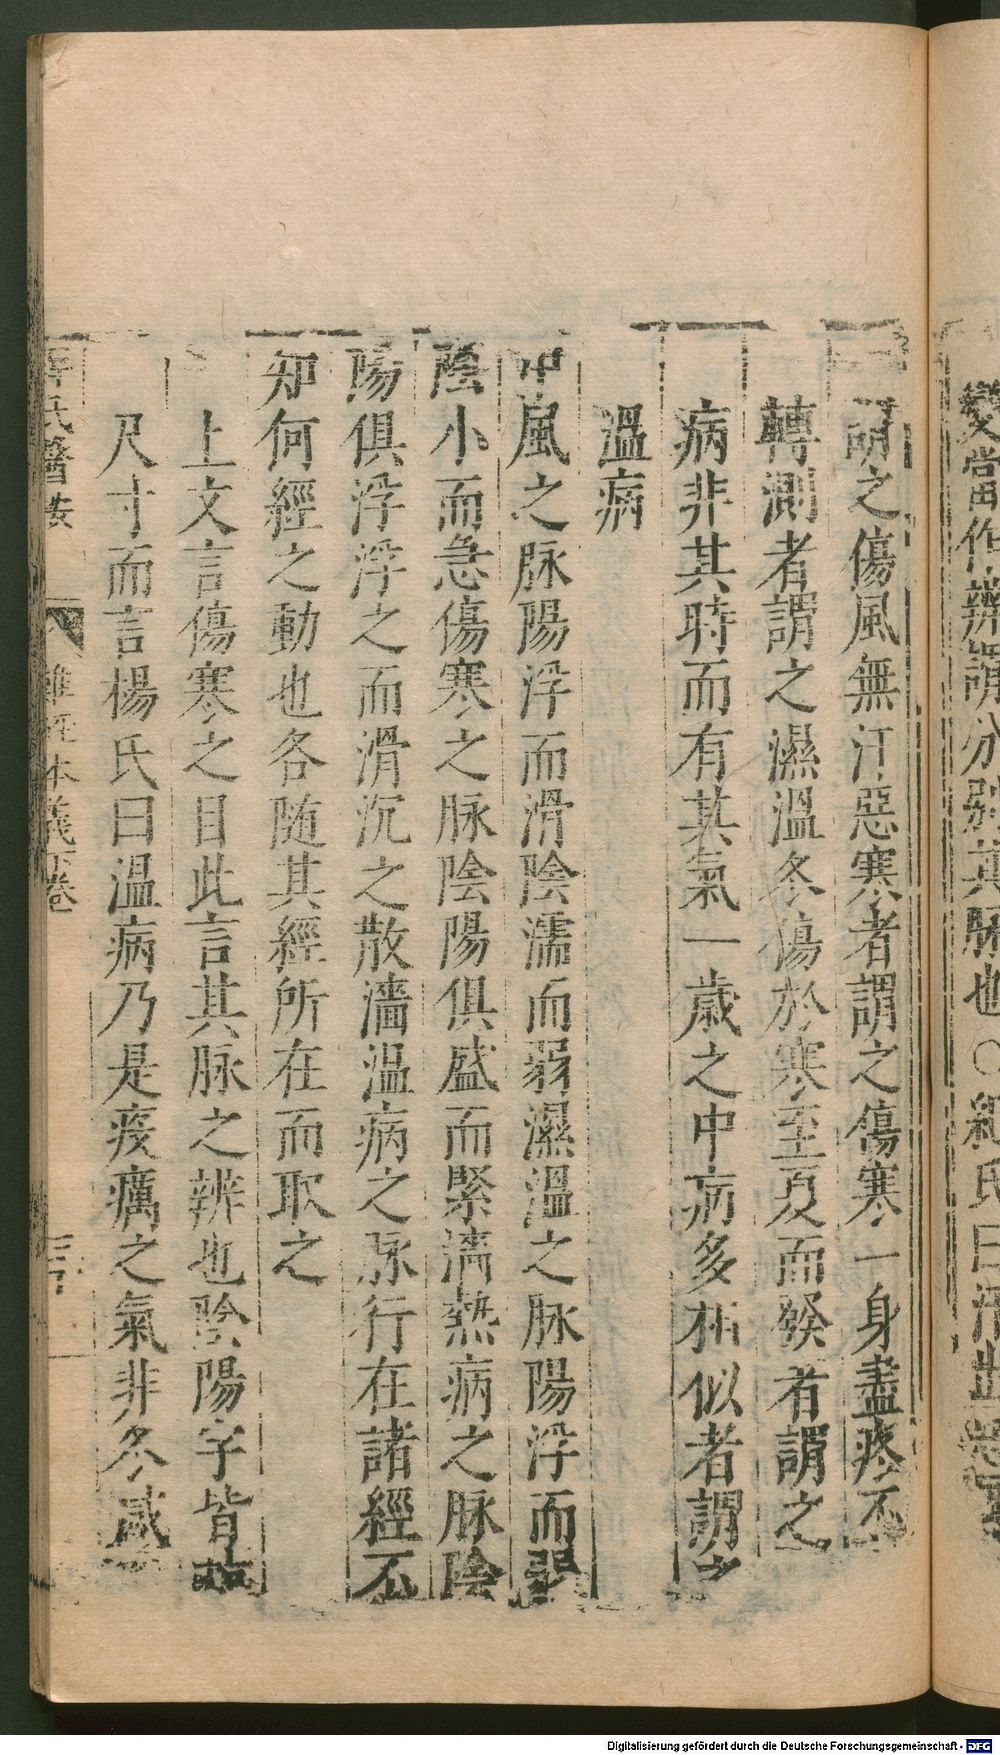 變當作辨謂分別其脉也○紀氏曰汗出惡
謂之傷風無汗惡寒者謂之傷寒一身盡疼不
轉測者謂之濕溫冬傷於寒至夏而發者謂之
病非其時而有其氣一歲之中病多相似者謂之
溫病
中風之脉陽浮而滑陰濡而弱濕溫之脉陽浮而弱
陰小而急傷寒之脉陰陽俱盛而緊濇熱病之脉陰
陽俱浮浮之而滑沉之散濇温病之脉行在諸經不
知何經之動也各随其經所在而取之
上文言傷寒之目此言其脉之辨也陰陽字皆
尺寸而言楊氏曰温病乃是疫癘之氣非冬感
氏醫
難經本義下卷
Digitalisierung gefördert durch die Deutsche Forschungsgemeinschaft - DFG